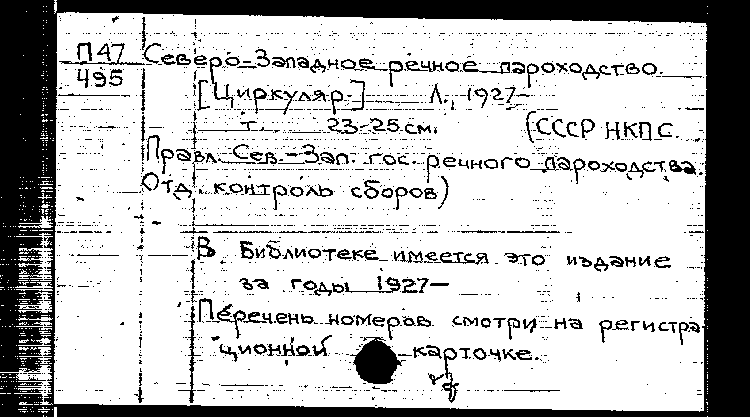 П47 Северо-Западное речное пароходство.
495 [Циркуляр] Л., 1927-
т. 23-25 см. (СССР НКПС.
Правл. Сев.-Зап. гос. речного пароходства.
Отд. контроль сборов)
В Библиотеке имеется это издание
за годы 1927—
Перечень номеров смотри на регистра-
ционной карточке.